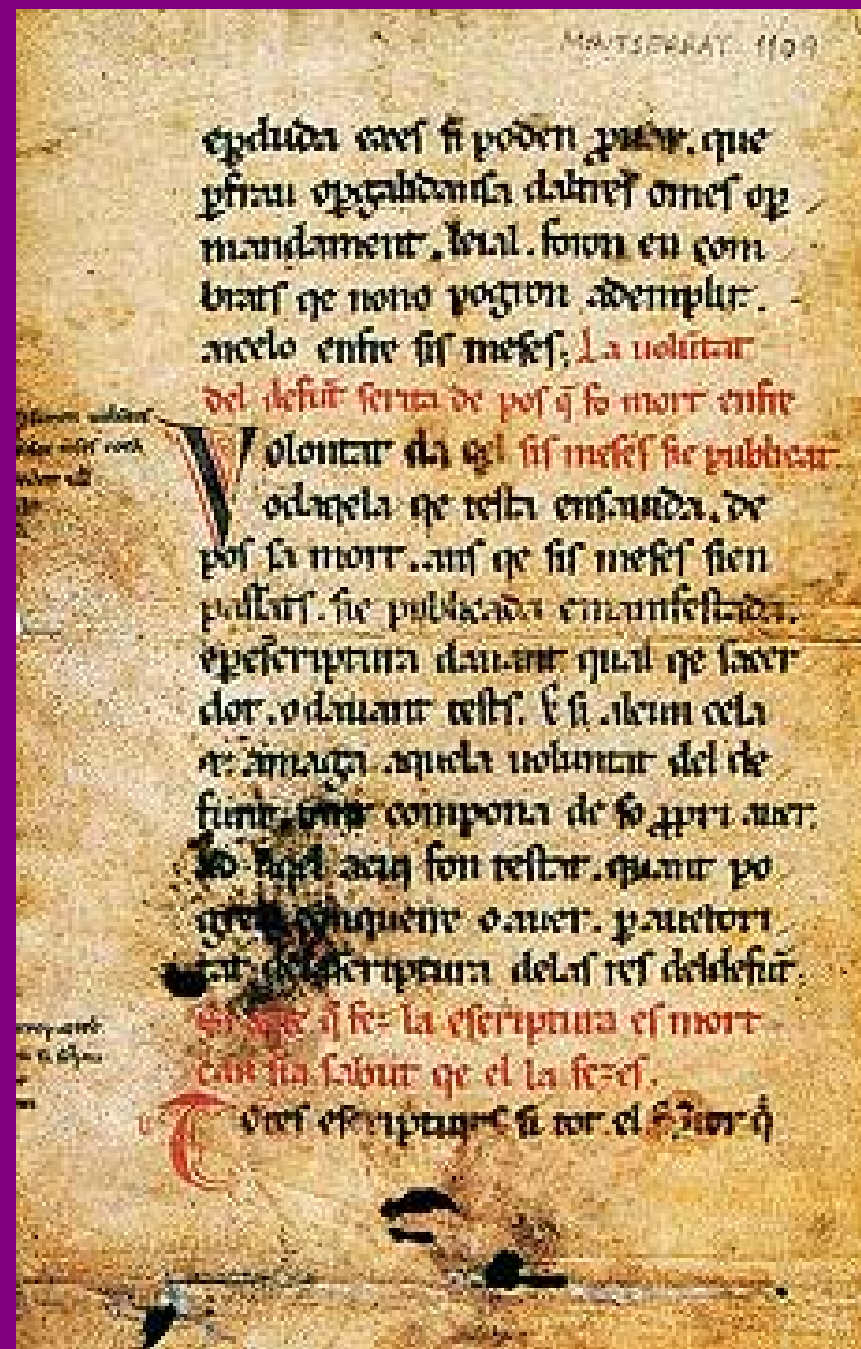 MONTSERRAT 1109
epduda eres si poden que
pfrau o daltres omes op
mandament. leial. foron en com
brats qe nono pogron ademplir.
aicelo enfre sis meses; La uolūtat
del defūt serita de pos q̄ fo mort enfre
Volontat da sis meses sie publicat.
odaqela qe resta ensauda. de
pos sa mort. ans qe sis meses sien
passats. sie publicada emanifestada.
epescriptura dauant qual qe sacer
dot. odauant tests. E si alcun cela
amaga aquela uoluntat del de
funt, compona de so ppri auer.
aqel acui fon testat. quant po
conquerre o auer. p auctori
tat descriptura delas res deldefūt.
q̄ fez la escriptura es mort
can sia sabut qe el la fezes.
Totes escriptures si tot el q̄